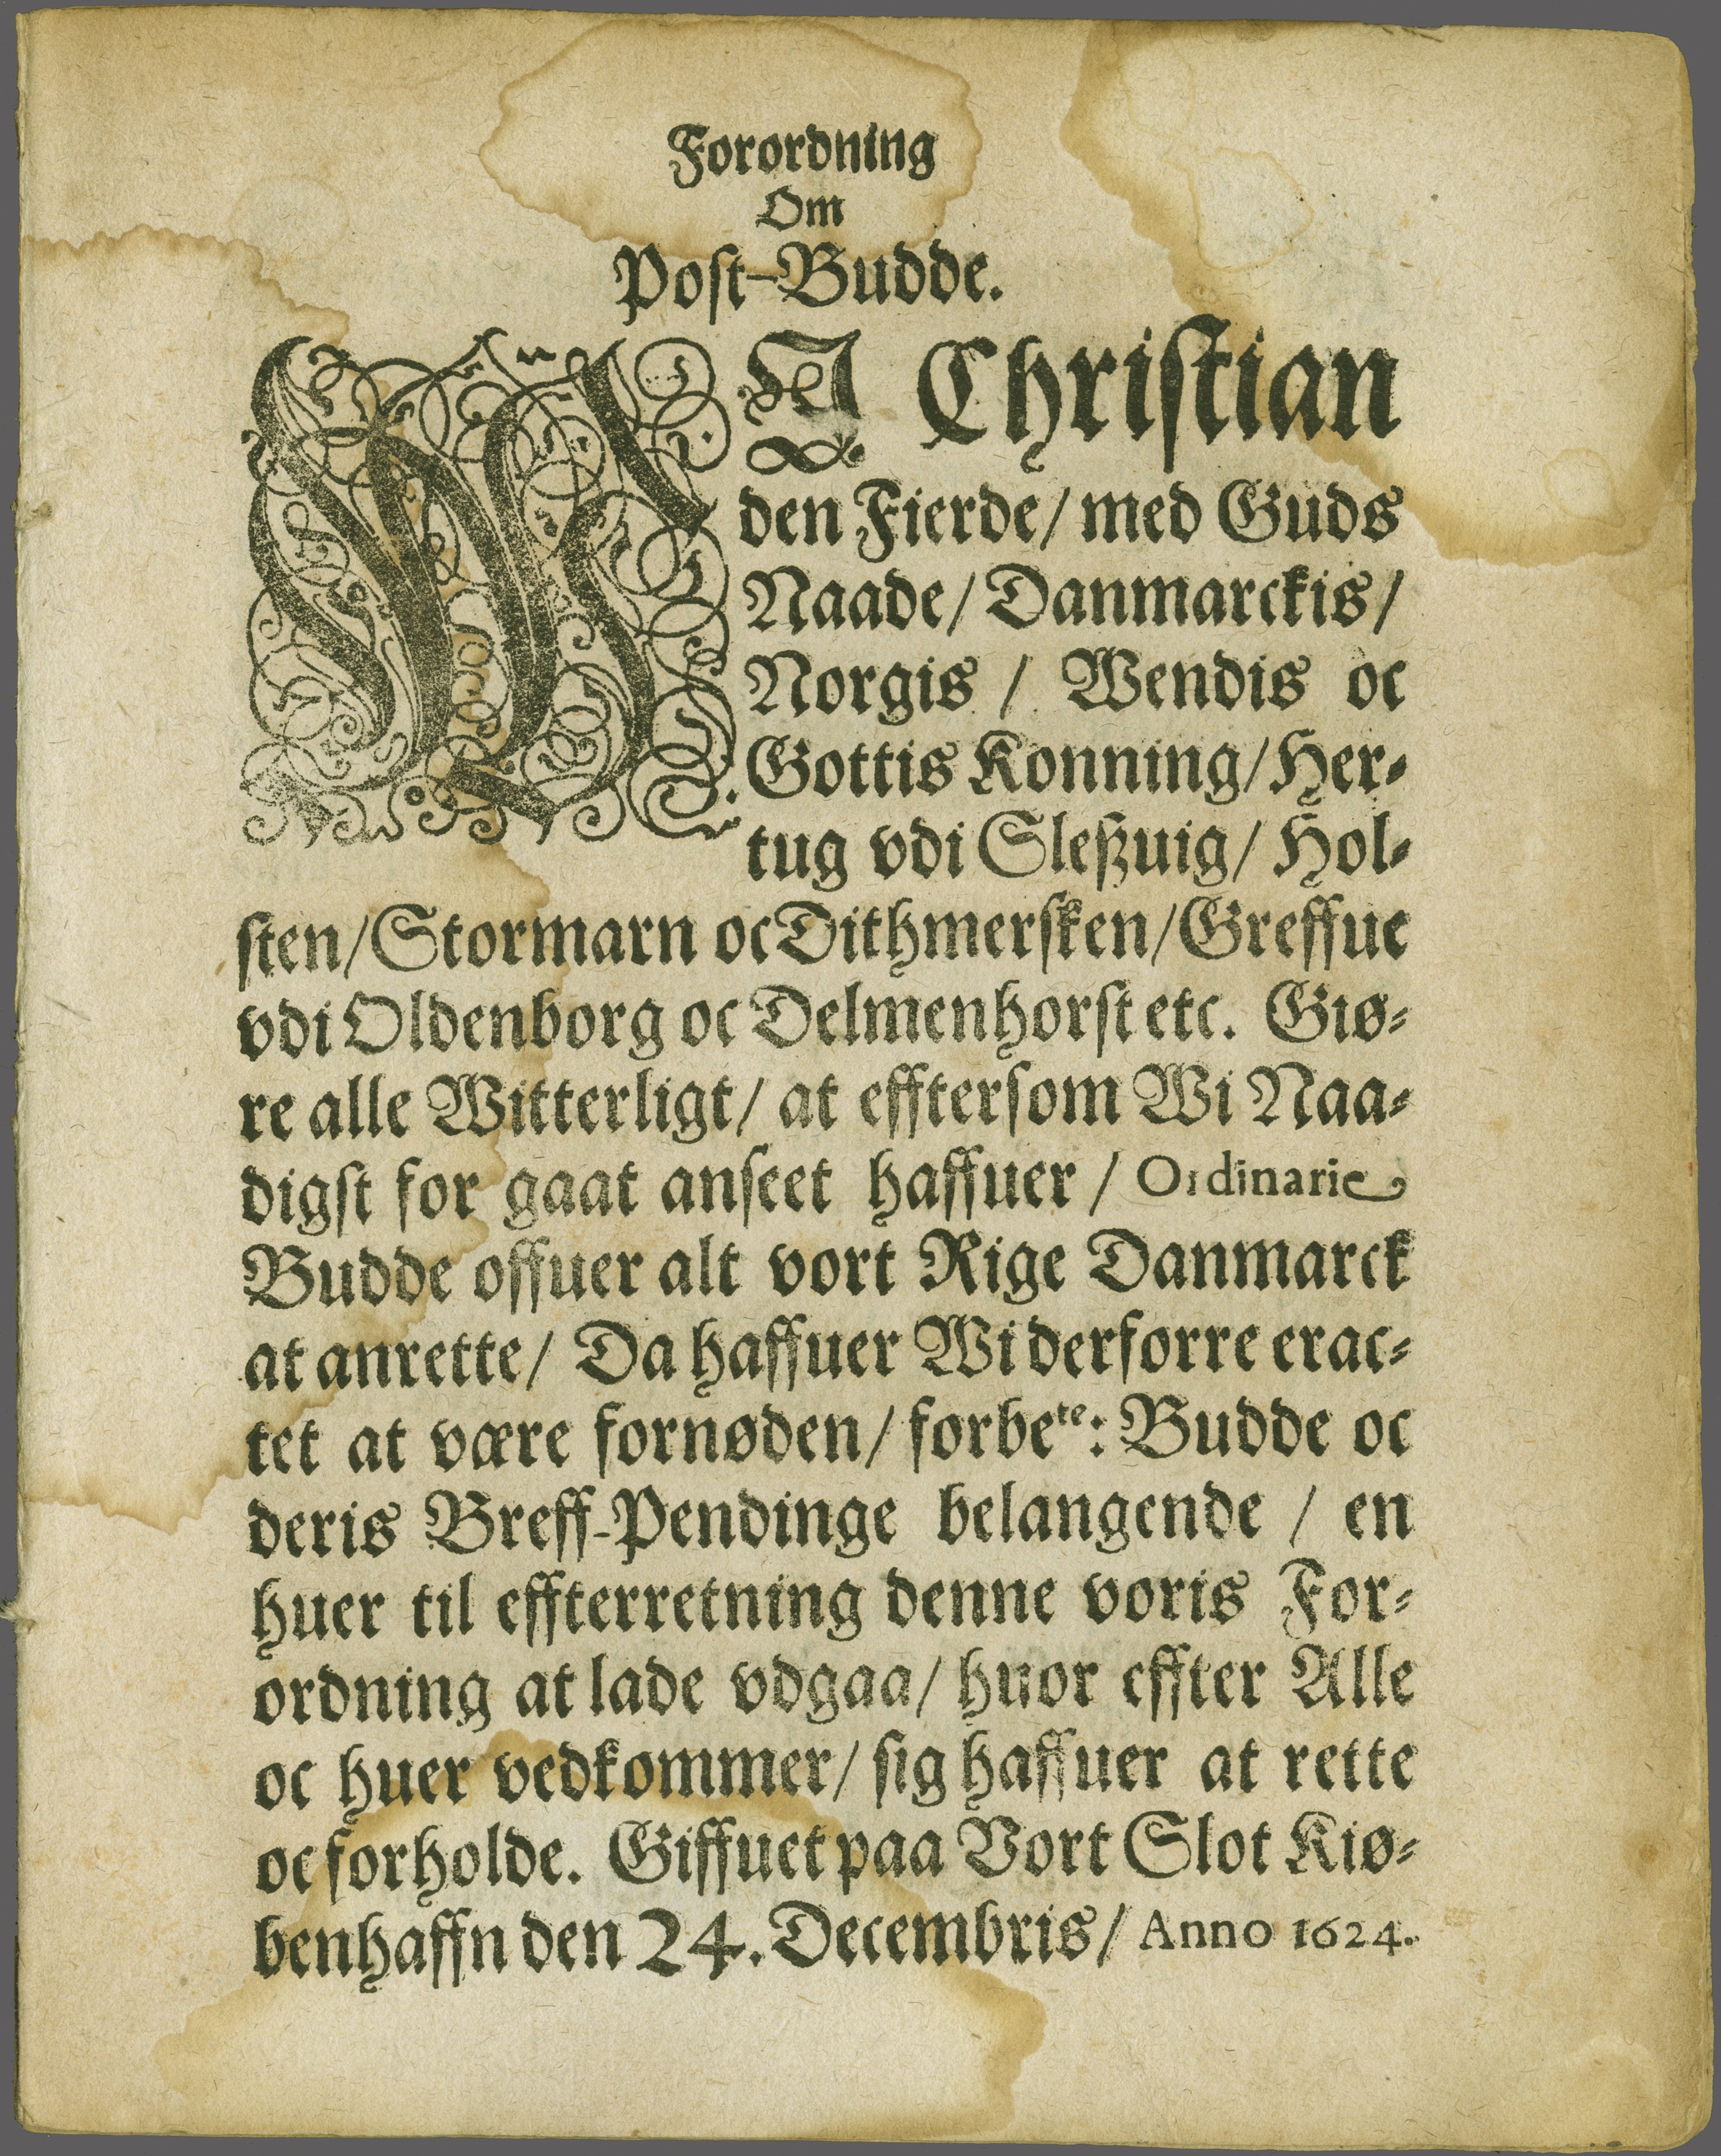 Forordning
Om
Post-Budde.
WJ Christian
den Fierde/ med Guds
Naade/ Danmarckis/
Norgis / Wendis oc
Gottis Konning/ Her-
tug vdi Sleßuig/ Hol-
sten/ Stormarn oc Dithmersken/ Greffue
vdi Oldenborg oc Delmenhorst etc. Giø-
re alle Witterligt/ at efftersom Wi Naa-
digst for gaat anseet haffuer / Ordinarie
Budde offuer alt vort Rige Danmarck
at anrette/ Da haffuer Wi derforre erac-
tet at være fornøden/ forbete: Budde oc
deris Breff-Pendinge belangende / en
huer til effterretning denne voris For-
ordning at lade vdgaa/ huor effter Alle
oc huer vedkommer/ sig haffuer at rette
oc forholde. Giffuet paa Vort Slot Kiø-
benhaffn den 24. Decembris/ Anno 1624.